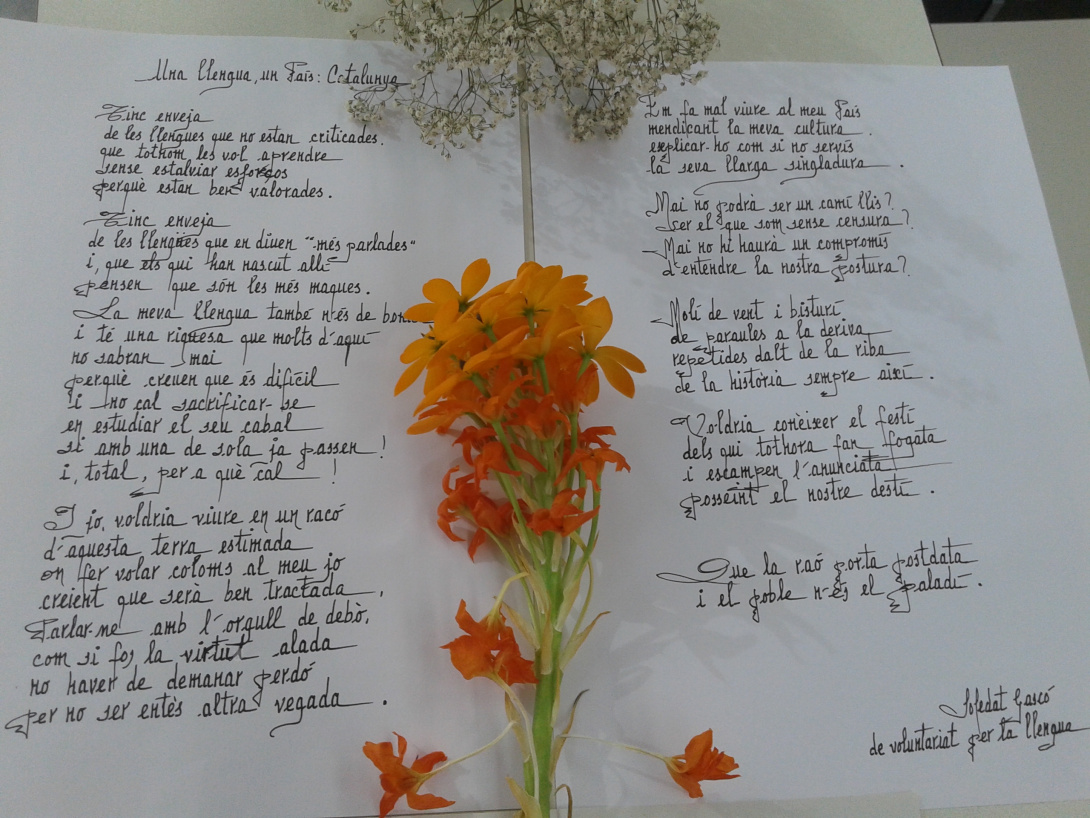 Una llengua, un País: Catalunya
Tinc enveja
de les llengues que no estan criticades.
que tothom les vol aprendre
sense estalviar esforços
perquè estan ben valorades.
Tinc enveja
de les llengües que en diuen "més parlades"
i, que els qui han nascut allí
pensen que són les més maques.
La meva llengua també n'és de
i té una riquesa que molts d'aquí
no sabran mai
perquè creuen que és difícil
i no cal sacrificar-se
en estudiar el seu cabal
si amb una de sola ja passen!
i, total, per a què cal!
I jo, voldria viure en un racó
d'aquesta terra estimada
on fer volar coloms al meu jo
creient que serà ben tractada,
Parlar-me amb l'orgull de debò,
com si fos la virtut alada
no haver de demanar perdó
per no ser entès altra vegada.
Em fa mal viure al meu País
mendicant la meva cultura.
explicar-ho com si no servís
la seva llarga singladura.
Mai no podrà ser un camí llis?
ser el que som sense censura?
Mai no hi haurà un compromís
d'entendre la nostra postura?
Molí de vent i bisturí
de paraules a la deriva
repetides dalt de la riba
de la història sempre així.
Voldria conèixer el festí
dels qui tothora fan fogata
i escampen l'anunciata
posseint el nostre destí.
Que la raó porta postdata
i el poble n'és el paladí.
Soledat Gascó
de voluntariat per la llengua